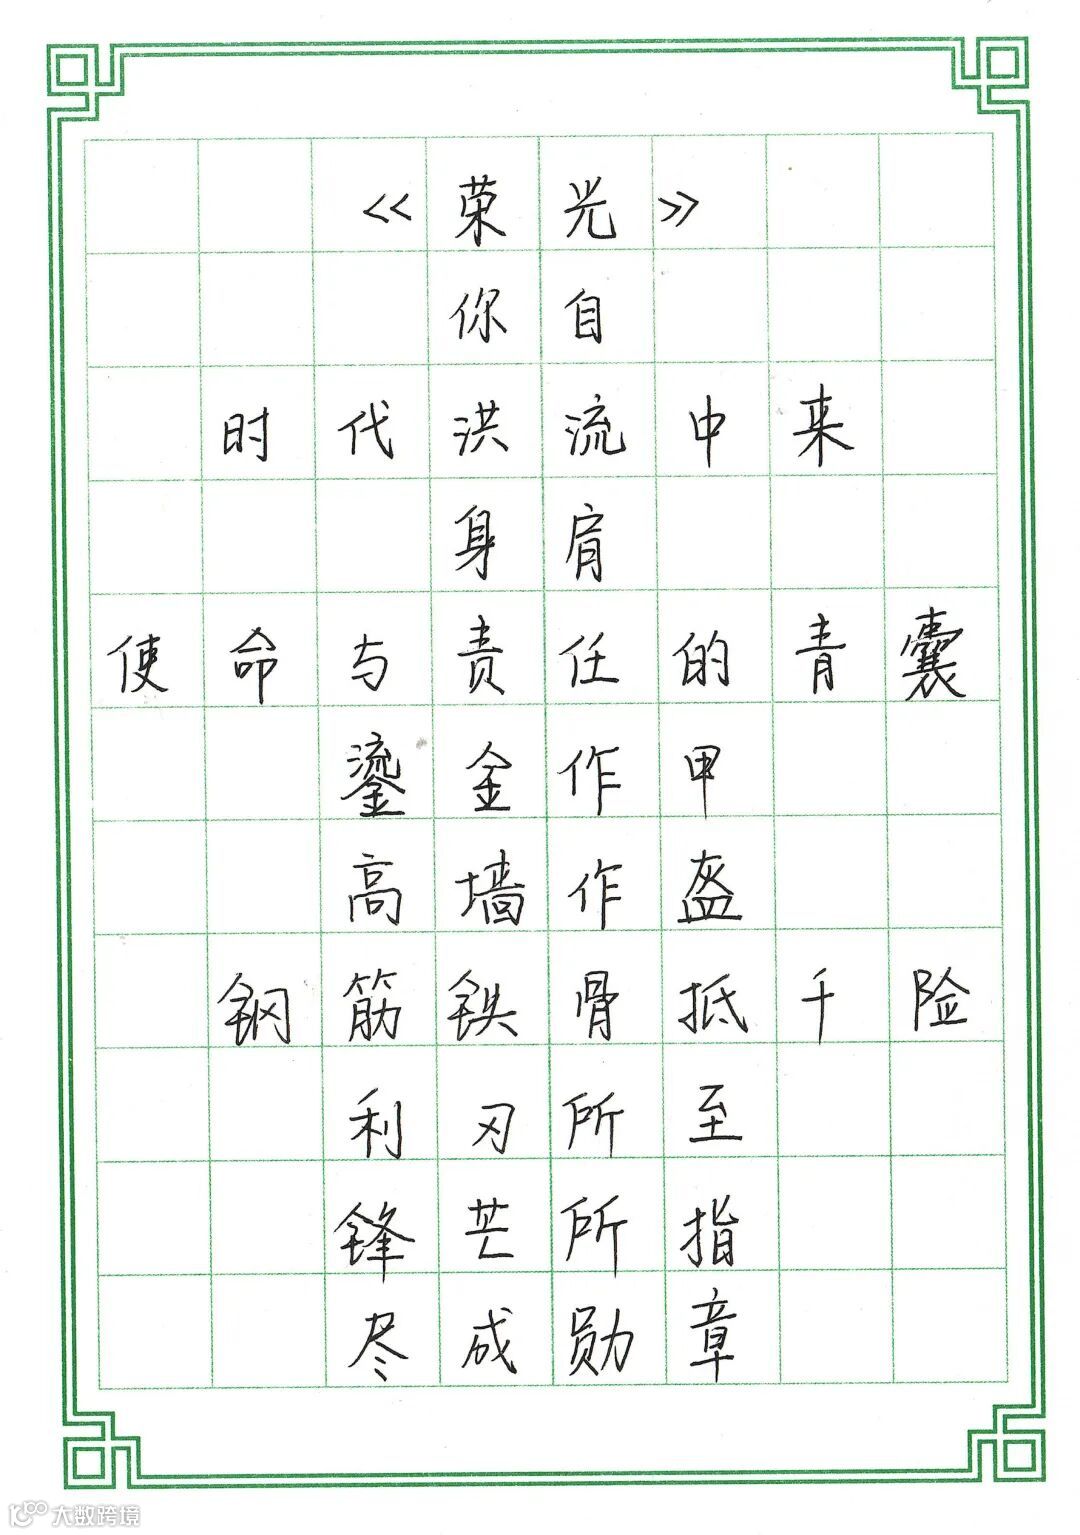 《荣光》
你自
时代洪流中来
身肩
使命与责任的青囊
鎏金作甲
高墙作盔
钢筋铁骨抵千险
利刃所至
锋芒所指
尽成勋章
大数跨境